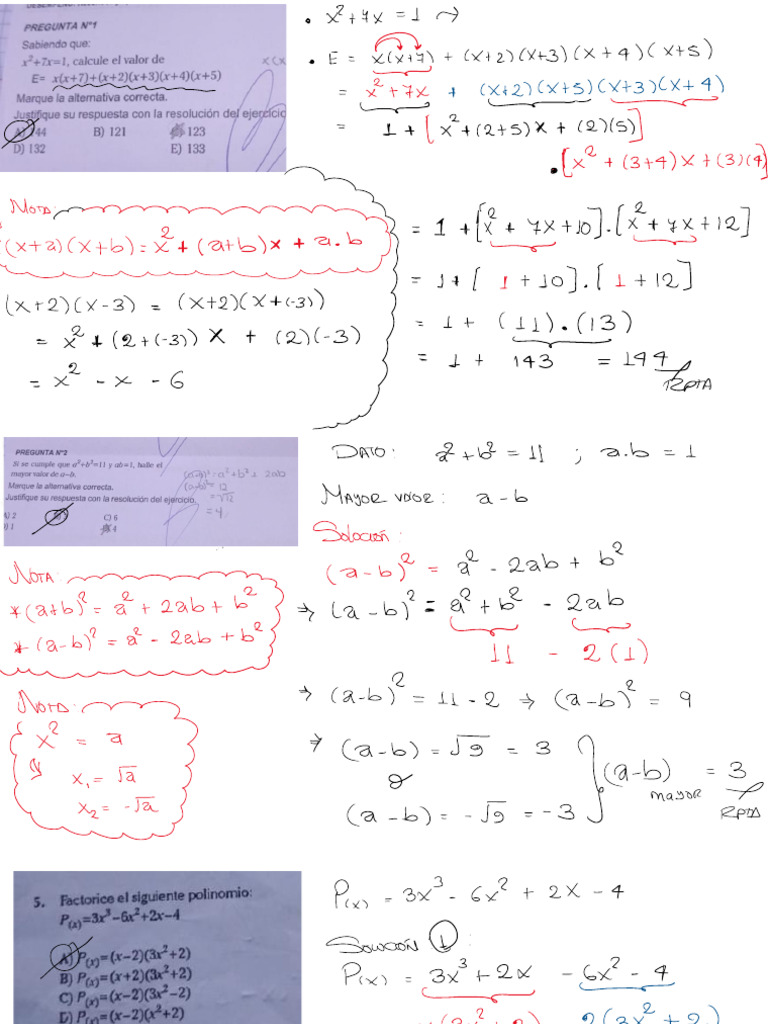 PREGUNTA N°1
Sabiendo que:
x²+7x=1, calcule el valor de
E= x(x+7)+(x+2)(x+3)(x+4)(x+5)
Marque la alternativa correcta.
Justifique su respuesta con la resolución del ejercicio
A) 144 B) 121 123
D) 132 E) 133
• x²+7x = 1 →
• E = x(x+7) + (x+2)(x+3)(x+4)(x+5)
= x²+7x + (x+2)(x+5)(x+3)(x+4)
= 1+[x²+(2+5)x+(2)(5)]
•[x²+(3+4)x+(3)(4)
= 1+[x²+7x+10].[x²+7x+12]
= 1+[1+10].[1+12]
= 1+(11).(13)
= 1+143 = 144
RPTA
NOTA:
(x+a)(x+b)=x²+(a+b)x+a.b
(x+2)(x-3) = (x+2)(x+(-3))
= x²+(2+(-3))x + (2)(-3)
= x²-x-6
PREGUNTA N°2
Si se cumple que a²+b²=11 y ab=1, halle el
mayor valor de a-b.
Marque la alternativa correcta.
Justifique su respuesta con la resolución del ejercicio.
A) 2 C) 6
1 4
(a+b)²=a²+b²+ 2ab
=√12
DATO: a²+b²=11 ; a.b=1
MAYOR VALOR: a-b
SOLUCIÓN:
(a-b)² = a²-2ab+b²
⇒ (a-b)² = a²+b² - 2ab
11 - 2(1)
⇒ (a-b)² = 11-2 ⇒ (a-b)² = 9
⇒ (a-b) = √9 = 3
(a-b) = 3
mayor
RPTA
(a-b) = -√9 = -3
NOTA:
*(a+b)²=a²+2ab+b²
*(a-b)²=a²-2ab+b²
NOTA:
x² = a
x₁ = √a
x₂ = -√a
5. Factorice el siguiente polinomio:
P(x)=3x³-6x²+2x-4
A) P(x)=(x-2)(3x²+2)
B) P(x)=(x+2)(3x²+2)
C) P(x)=(x-2)(3x²-2)
D) P(x)=(x-2)(x²+2)
P(x) = 3x³-6x²+2x-4
SOLUCIÓN 1:
P(x) = 3x³+2x -6x²-4